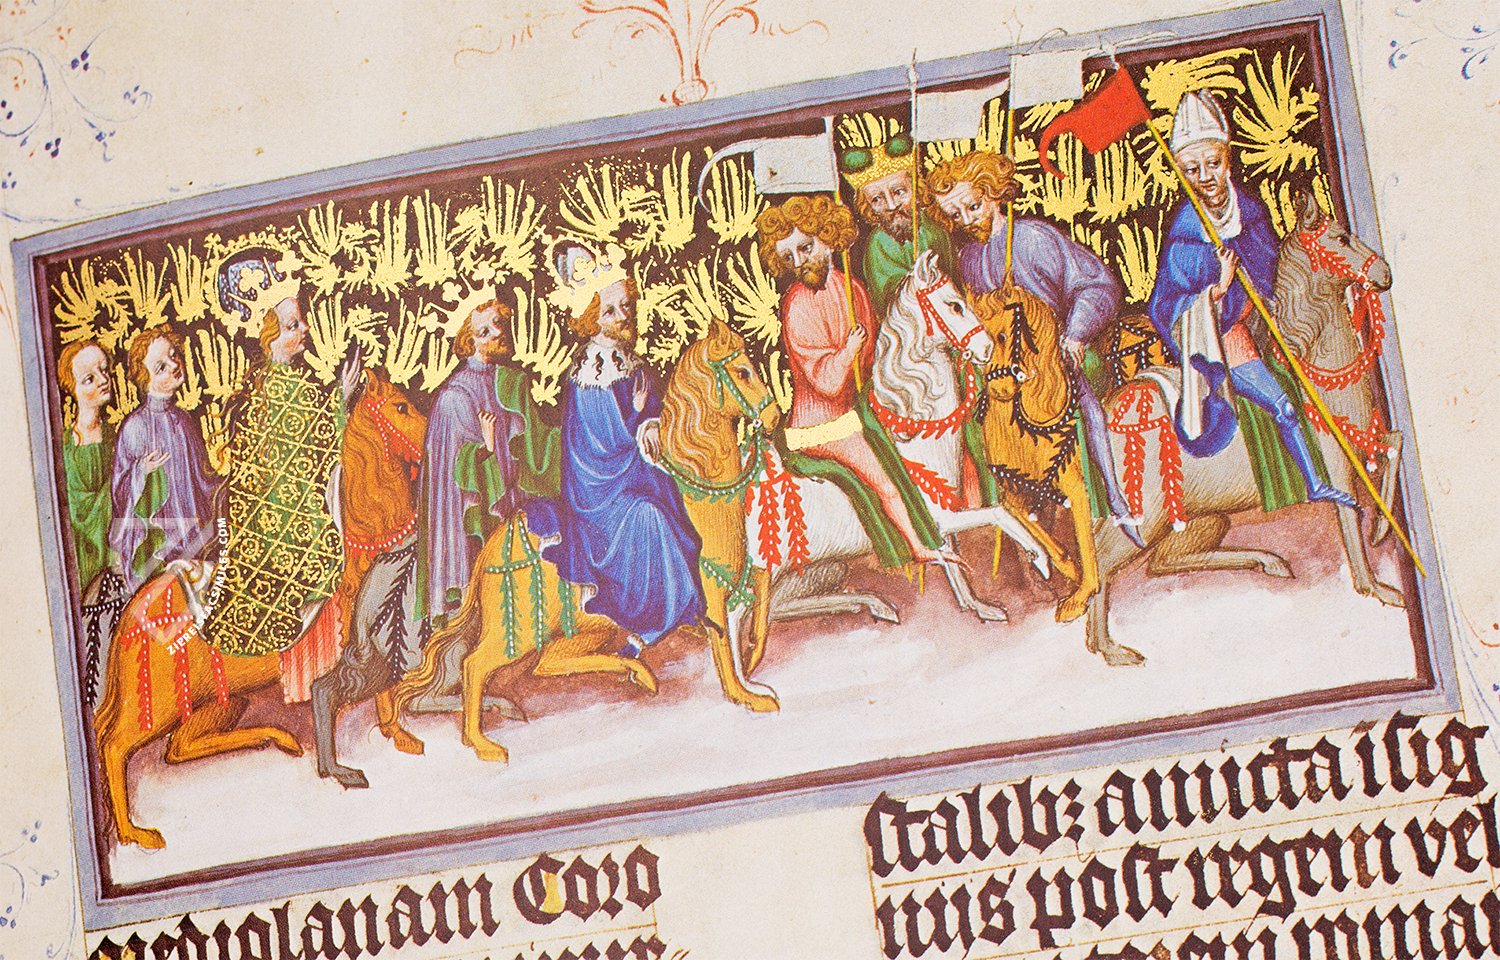 ZIPREFACSIMILES.COM
mediolanam Coro
stalibꝫ amicta i sig
niis post regem vel